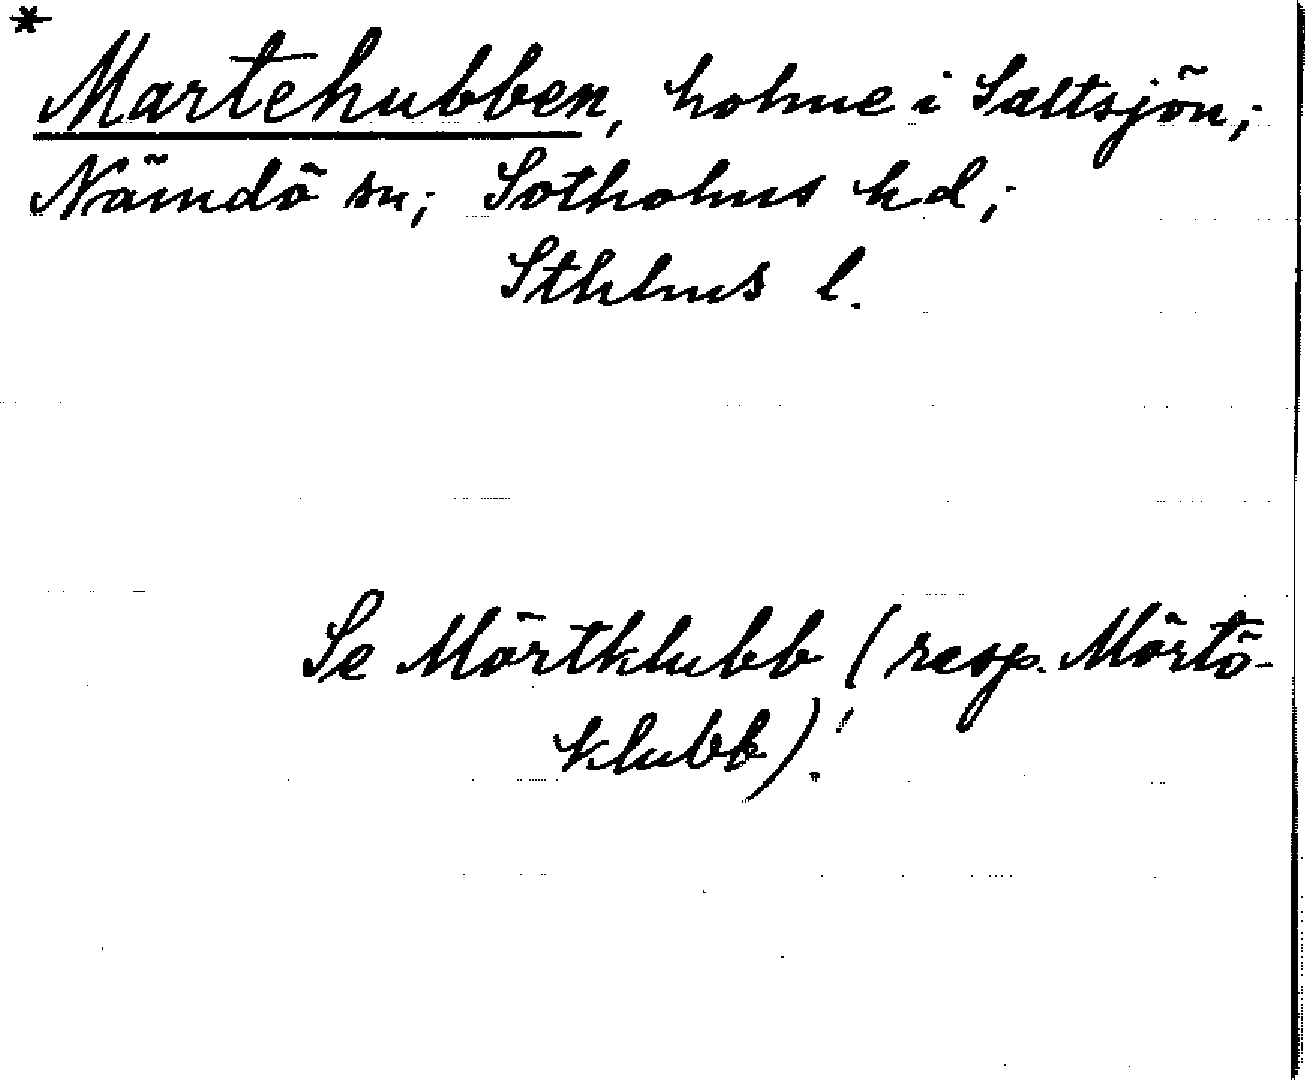 *
Martehubben, holme i Saltsjön;
Nämdö sn; Sotholms hd;
Sthlms l.
Se Mörtklubb (resp. Mörtö-
klubb)!